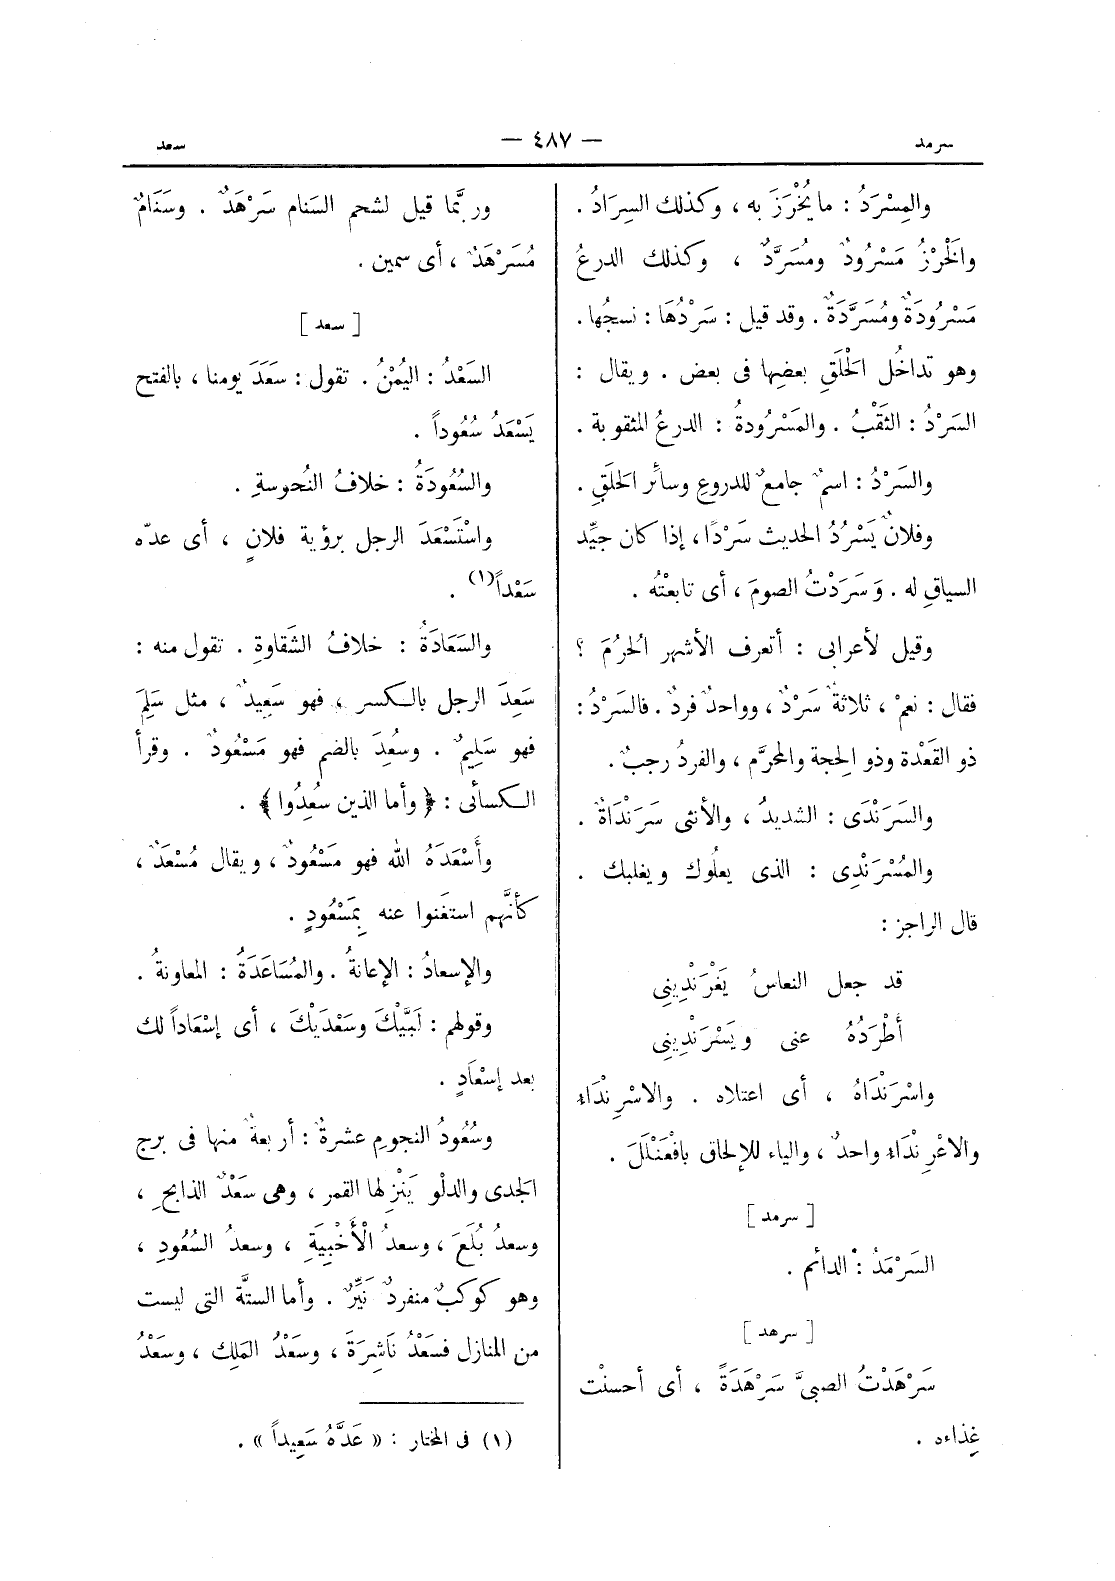 سرمد — ٤٨٧ — سعد
والمِسْرَدُ : ما يُخْرَزَ به ، وكذلك السِرَادُ .
والخَرْزُ مَسْرُودٌ ومُسَرَّدٌ ، وكذلك الدرعُ
مَسْرُودَةٌ ومُسَرَّدَةٌ . وقد قيل : سَرْدُهَا : نسجُها .
وهو تداخُل الحَلَقِ بعضِها فى بعض . ويقال :
السَرْدُ : الثَقْبُ . والمَسْرُودةُ : الدرعُ المثقوبة .
والسَرْدُ : اسمٌ جامعٌ للدروعِ وسائرِ الحَلَقِ .
وفلانٌ يَسْرُدُ الحديث سَرْدًا ، إذا كان جيِّد
السياقِ له . وَسَرَدْتُ الصومَ ، أى تابعْتُه .
وقيل لأعرابى : أتعرف الأشهر الحُرُمَ ؟
فقال : نعمْ ، ثلاثةٌ سَرْدٌ ، وواحدٌ فردٌ . فالسَرْدُ :
ذو القَعْدة وذو الحِجة والمحرَّم ، والفردُ رجبٌ .
والسَرَنْدَى : الشديدُ ، والأنثى سَرَنْدَاةٌ .
والمُسْرَنْدِى : الذى يعلُوك ويغلبك .
قال الراجز :
قد جعل النعاسُ يَغْرَنْدِينِى
أَطْرَدُهُ عنى ويَسْرَنْدِينِى
واسْرَنْدَاهُ ، أى اعتلاه . والاسْرِنْدَاء
والاغْرِنْدَاء واحدٌ ، والياء للإلحاق بافْعَنْلَلَ .
[ سرمد ]
السَرْمَدُ : الدائم .
[ سرهد ]
سَرْهَدْتُ الصبىَّ سَرْهَدَةً ، أى أحسنْت
غِذاءه .
وربَّما قيل لشحم السَنام سَرْهَدٌ . وسَنَامٌ
مُسَرْهَدٌ ، أى سمين .
[ سعد ]
السَعْدُ : اليُمْنُ . تقول : سَعَدَ يومنا ، بالفتح
يَسْعَدُ سُعُوداً .
والسُعُودَةُ : خلافُ النُحوسةِ .
واسْتَسْعَدَ الرجل برؤية فلانٍ ، أى عدّه
سَعْداً(١) .
والسَعَادَةُ : خلافُ الشَقاوةِ . تقول منه :
سَعِدَ الرجل بالكسر ، فهو سَعِيدٌ ، مثل سَلِمَ
فهو سَلِيمٌ . وسُعِدَ بالضم فهو مَسْعُودٌ . وقرأ
الكسائى : ﴿ وأما الذين سعُدِوا ﴾ .
وأَسْعَدَهُ الله فهو مَسْعُودٌ ، ويقال مُسْعَدٌ ،
كأنَّهم استغَنوا عنه بِمَسْعُودٍ .
والإسعادُ : الإعانةُ . والمُسَاعَدَةُ : المعاونةُ .
وقولهم : لَبَّيْكَ وسَعْدَيْكَ ، أى إسْعَاداً لك
بعد إسْعَادٍ .
وسُعُودُ النجومِ عشرةٌ : أربعةٌ منها فى برج
الجَدى والدلْو يَنْزِلها القمر ، وهى سَعْدٌ الذابحِ ،
وسعدُ بُلَعَ ، وسعدُ الأَخْبِيَةِ ، وسعدُ السُعُودِ ،
وهو كوكبٌ منفردٌ نَيِّرٌ . وأما الستَّة التى ليست
من المنازل فسَعْدُ نَاشِرَةَ ، وسَعْدُ المَلِك ، وسَعْدُ
(١) فى المختار : « عَدَّهُ سَعِيداً » .